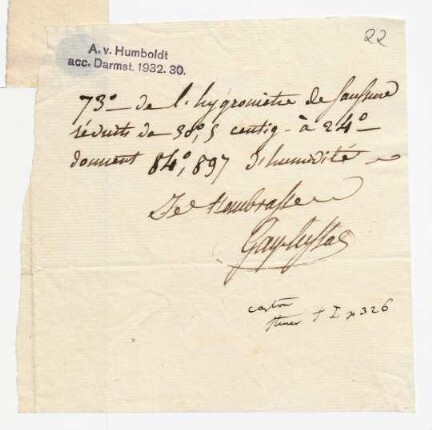 22
A. v. Humboldt
acc. Darmst. 1932. 30.
73° de l'hygrometre de Saussure
réduits de 30°,5 centig. à 24°
donnent 84°,897 d'humidité
Je t'embrasse
Gay-Lussac
t I p 326